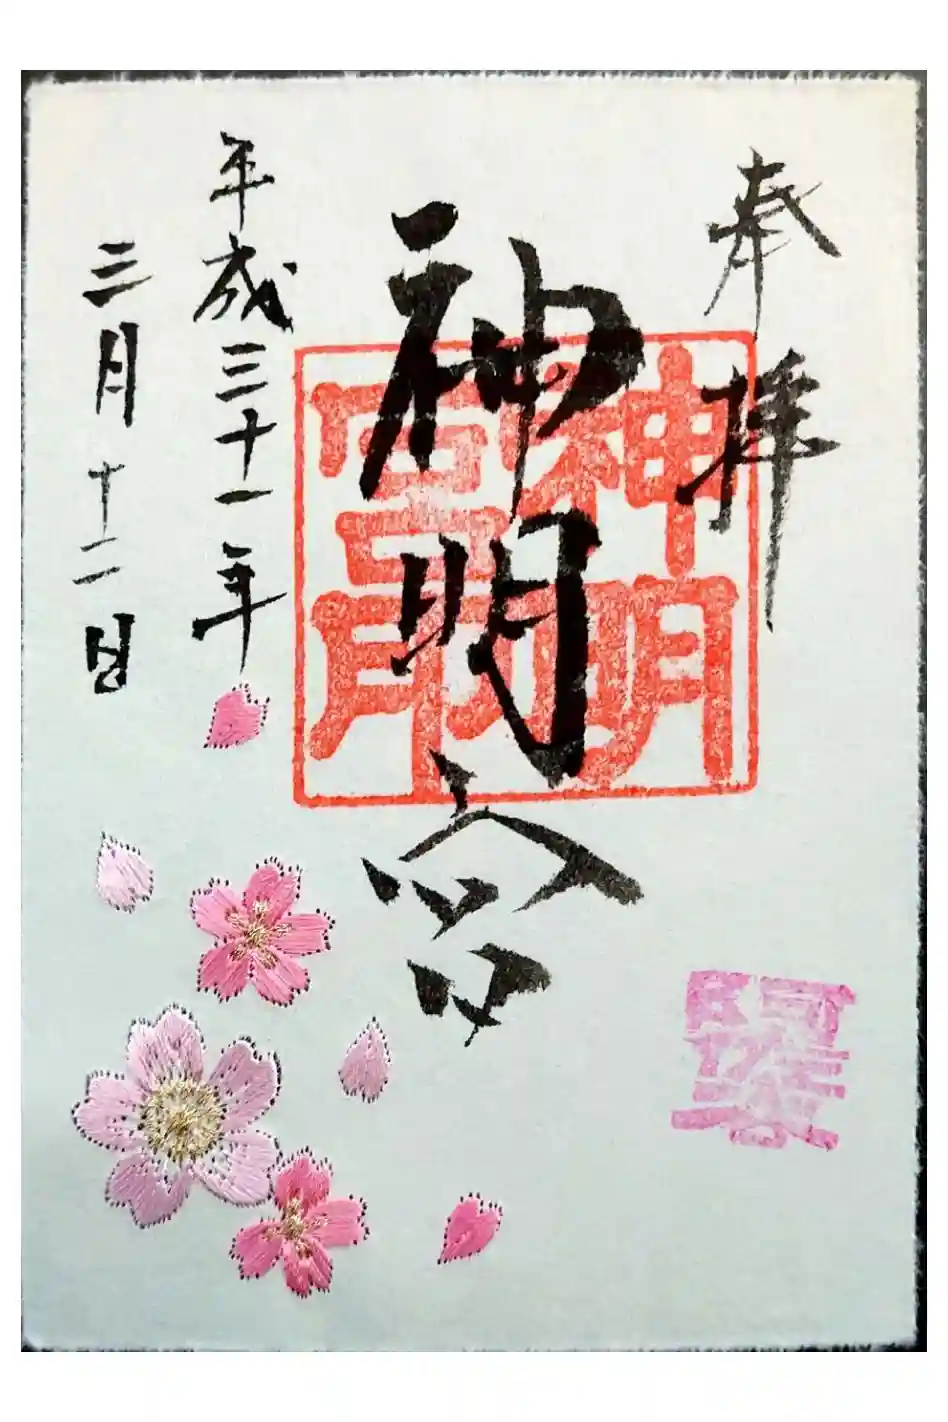 奉拝
神明宮
神明宮印
平成三十一年
三月十二日